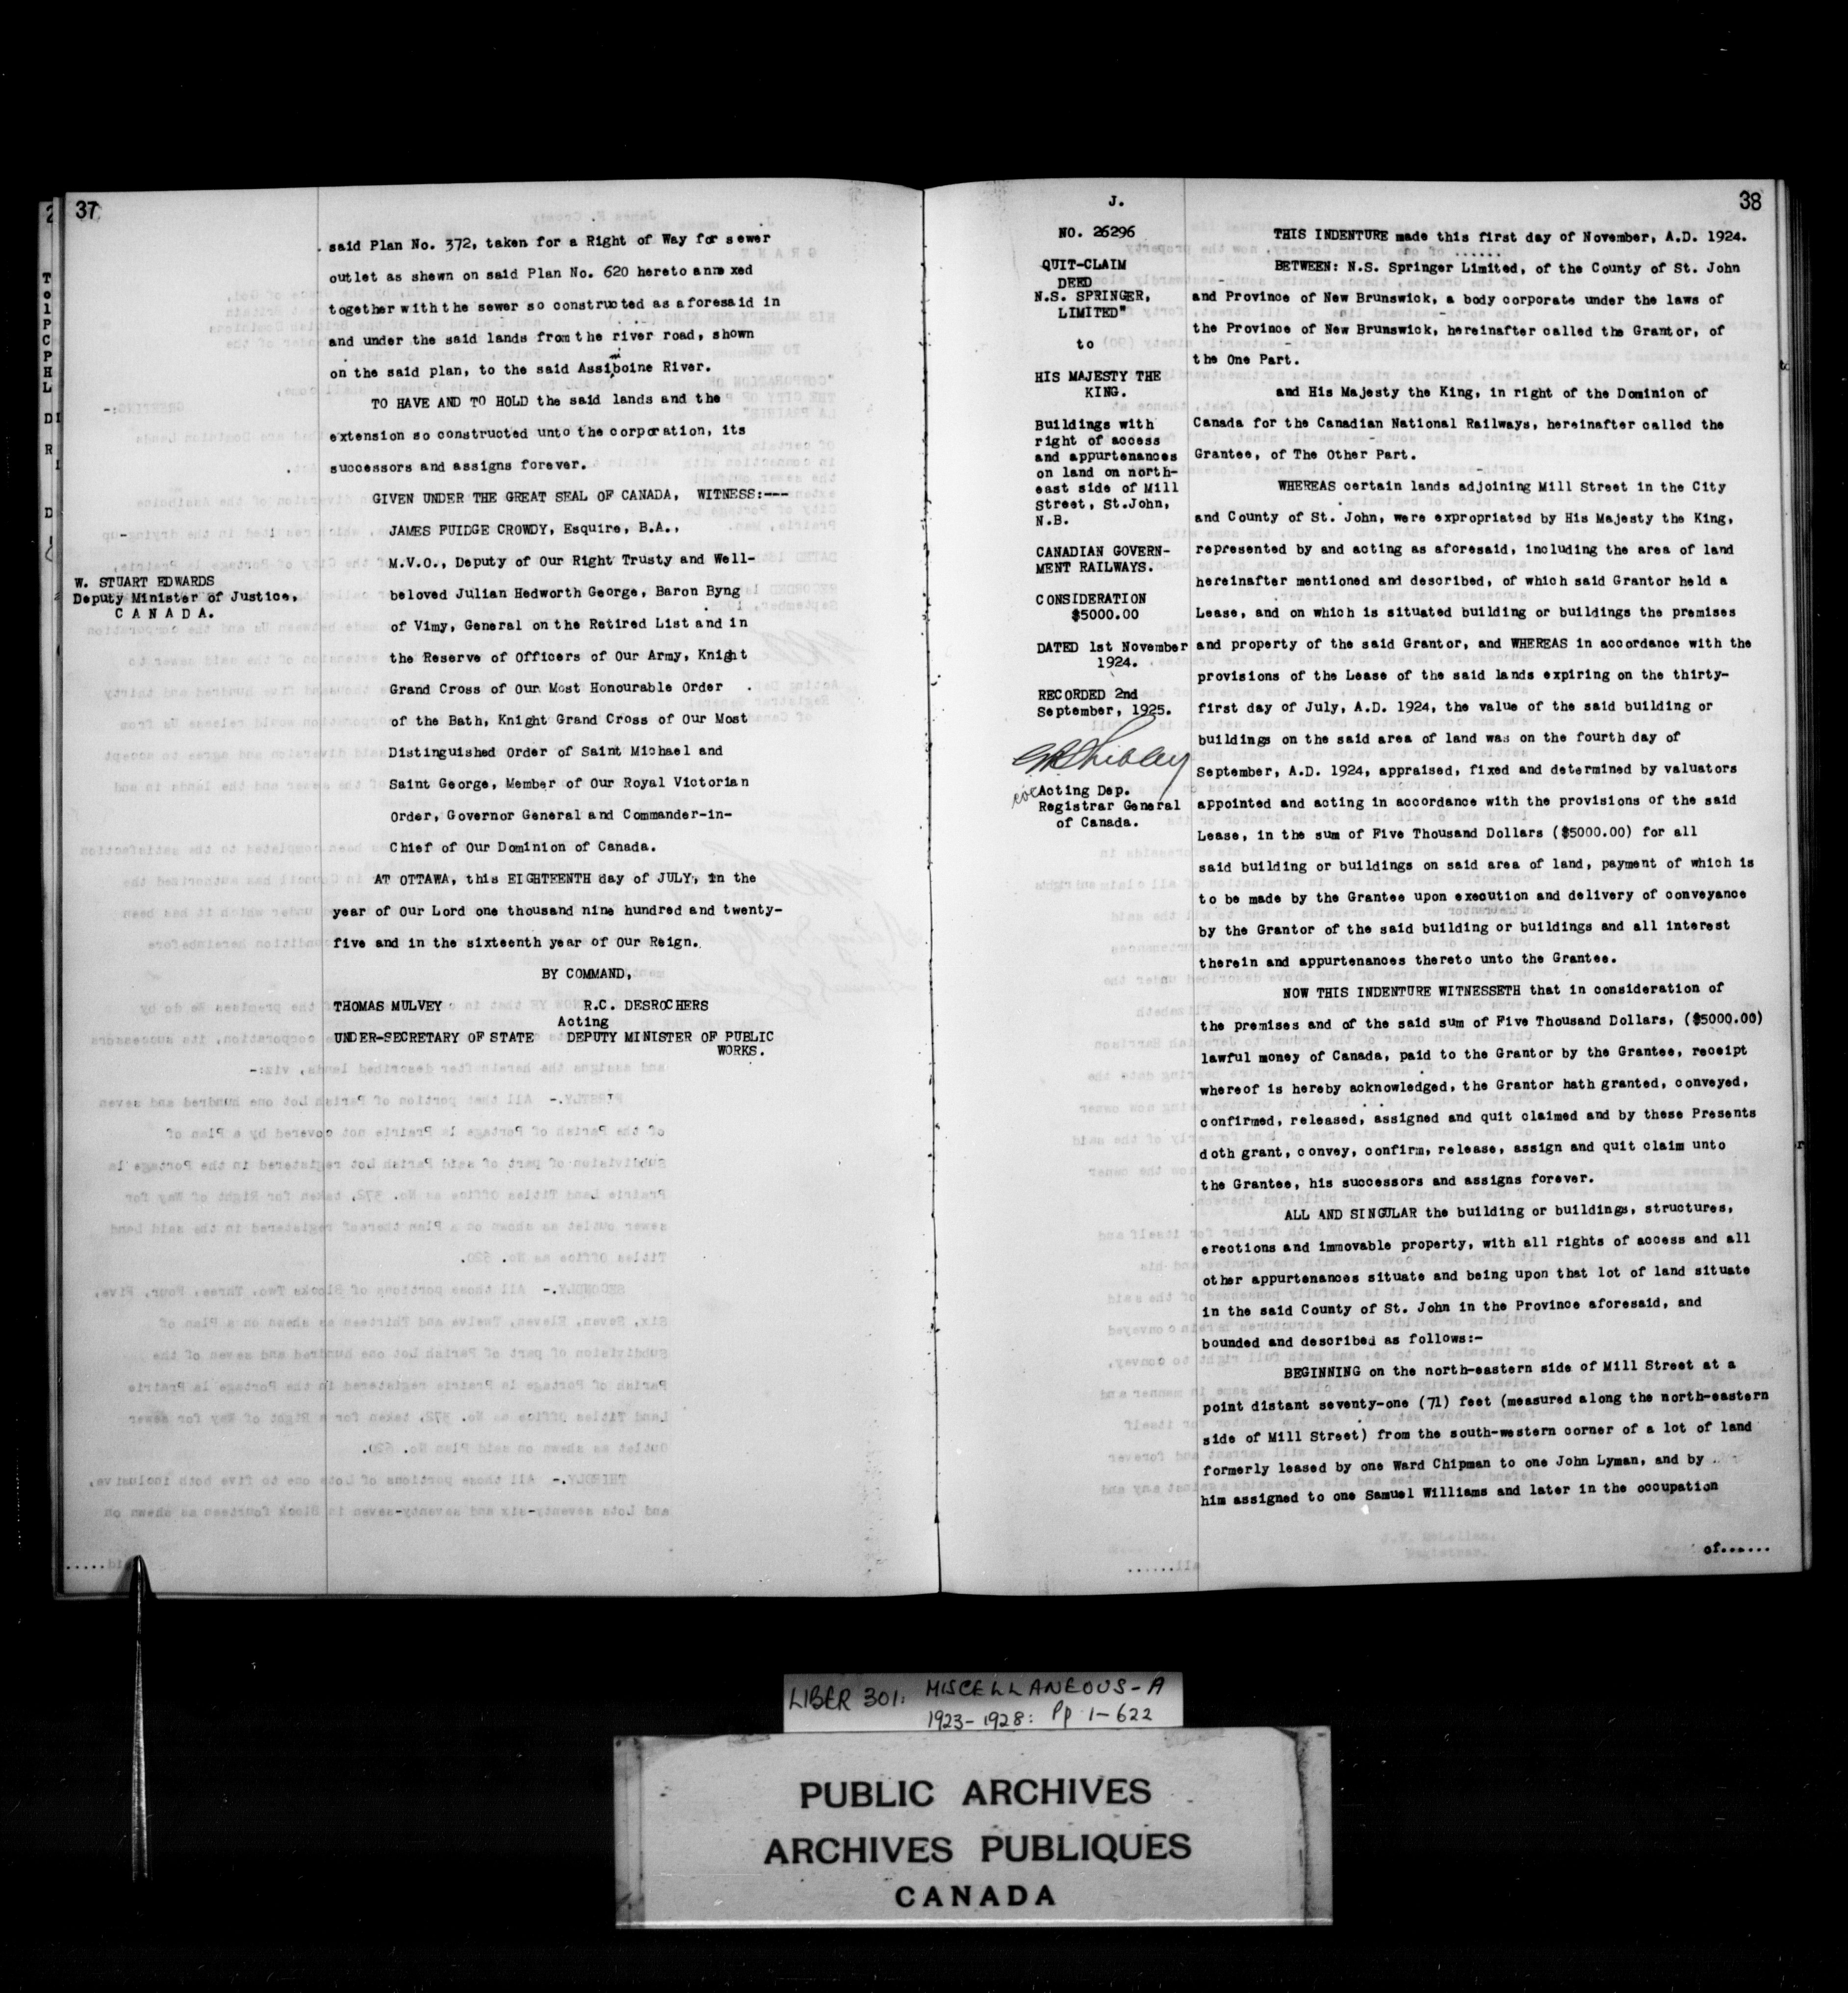 37
said Plan No. 372, taken for a Right of Way for sewer
outlet as shewn on said Plan No. 620 hereto annexed
together with the sewer so constructed as aforesaid in
and under the said lands from the river road, shown
on the said plan, to the said Assiniboine River.
TO HAVE AND TO HOLD the said lands and the
extension so constructed unto the corporation, its
successors and assigns forever.
GIVEN UNDER THE GREAT SEAL OF CANADA, WITNESS:---
JAMES FUIDGE CROWDY, Esquire, B.A.,
M.V.O., Deputy of Our Right Trusty and Well-
beloved Julian Hedworth George, Baron Byng
of Vimy, General on the Retired List and in
the Reserve of Officers of Our Army, Knight
Grand Cross of Our Most Honourable Order
of the Bath, Knight Grand Cross of Our Most
Distinguished Order of Saint Michael and
Saint George, Member of Our Royal Victorian
Order, Governor General and Commander-in-
Chief of Our Dominion of Canada.
W. STUART EDWARDS
Deputy Minister of Justice,
CANADA.
AT OTTAWA, this EIGHTEENTH day of JULY, in the
year of Our Lord one thousand nine hundred and twenty-
five and in the sixteenth year of Our Reign.
BY COMMAND,
THOMAS MULVEY R.C. DESROCHERS
Acting
UNDER-SECRETARY OF STATE DEPUTY MINISTER OF PUBLIC
WORKS.
J.
38
NO. 26296
QUIT-CLAIM
DEED
N.S. SPRINGER,
LIMITED"
to
HIS MAJESTY THE
KING.
Buildings with
right of access
and appurtenances
on land on north-
east side of Mill
Street, St.John,
N.B.
CANADIAN GOVERN-
MENT RAILWAYS.
CONSIDERATION
$5000.00
DATED 1st November
1924.
RECORDED 2nd
September, 1925.
Acting Dep.
Registrar General
of Canada.
THIS INDENTURE made this first day of November, A.D. 1924.
BETWEEN: N.S. Springer Limited, of the County of St. John
and Province of New Brunswick, a body corporate under the laws of
the Province of New Brunswick, hereinafter called the Grantor, of
the One Part.
and His Majesty the King, in right of the Dominion of
Canada for the Canadian National Railways, hereinafter called the
Grantee, of The Other Part.
WHEREAS certain lands adjoining Mill Street in the City
and County of St. John, were expropriated by His Majesty the King,
represented by and acting as aforesaid, including the area of land
hereinafter mentioned and described, of which said Grantor held a
Lease, and on which is situated building or buildings the premises
and property of the said Grantor, and WHEREAS in accordance with the
provisions of the Lease of the said lands expiring on the thirty-
first day of July, A.D. 1924, the value of the said building or
buildings on the said area of land was on the fourth day of
September, A.D. 1924, appraised, fixed and determined by valuators
appointed and acting in accordance with the provisions of the said
Lease, in the sum of Five Thousand Dollars ($5000.00) for all
said building or buildings on said area of land, payment of which is
to be made by the Grantee upon execution and delivery of conveyance
by the Grantor of the said building or buildings and all interest
therein and appurtenances thereto unto the Grantee.
NOW THIS INDENTURE WITNESSETH that in consideration of
the premises and of the said sum of Five Thousand Dollars, ($5000.00)
lawful money of Canada, paid to the Grantor by the Grantee, receipt
whereof is hereby acknowledged, the Grantor hath granted, conveyed,
confirmed, released, assigned and quit claimed and by these Presents
doth grant, convey, confirm, release, assign and quit claim unto
the Grantee, his successors and assigns forever.
ALL AND SINGULAR the building or buildings, structures,
erections and immovable property, with all rights of access and all
other appurtenances situate and being upon that lot of land situate
in the said County of St. John in the Province aforesaid, and
bounded and described as follows:-
BEGINNING on the north-eastern side of Mill Street at a
point distant seventy-one (71) feet (measured along the north-eastern
side of Mill Street) from the south-western corner of a lot of land
formerly leased by one Ward Chipman to one John Lyman, and by
him assigned to one Samuel Williams and later in the occupation
of......
LIBER 301: MISCELLANEOUS-A
1923-1928: Pp 1-622
PUBLIC ARCHIVES
ARCHIVES PUBLIQUES
CANADA